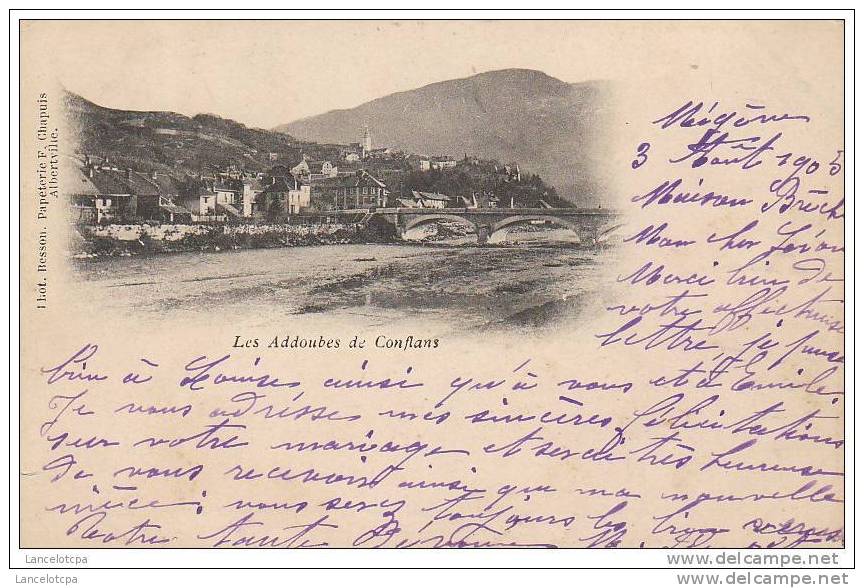 Phot. Besson. Papeterie F. Chapuis
Albertville.
Les Addoubes de Conflans
3 Août 1903
Maison
Mon cher
Merci bien de
votre affectueuse
lettre, je pense
bien à Louise ainsi qu'à vous et à Emile.
Je vous adresse mes sincères félicitations
sur votre mariage et serai très heureuse
de vous recevoir ainsi que ma nouvelle
nièce; vous serez toujours les bien venus
Votre tante
Lancelotcpa
delcampe.net
Lancelotcpa
website delcampe.net